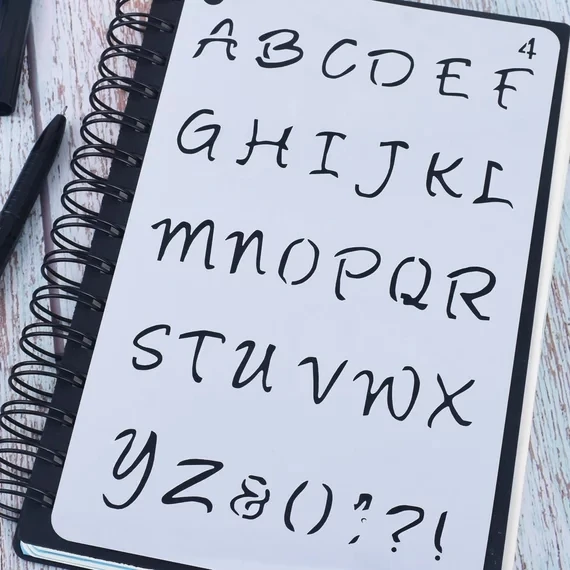 4
A B C D E F
G H I J K L
M N O P Q R
S T U V W X
Y Z & ( ) ; ? !